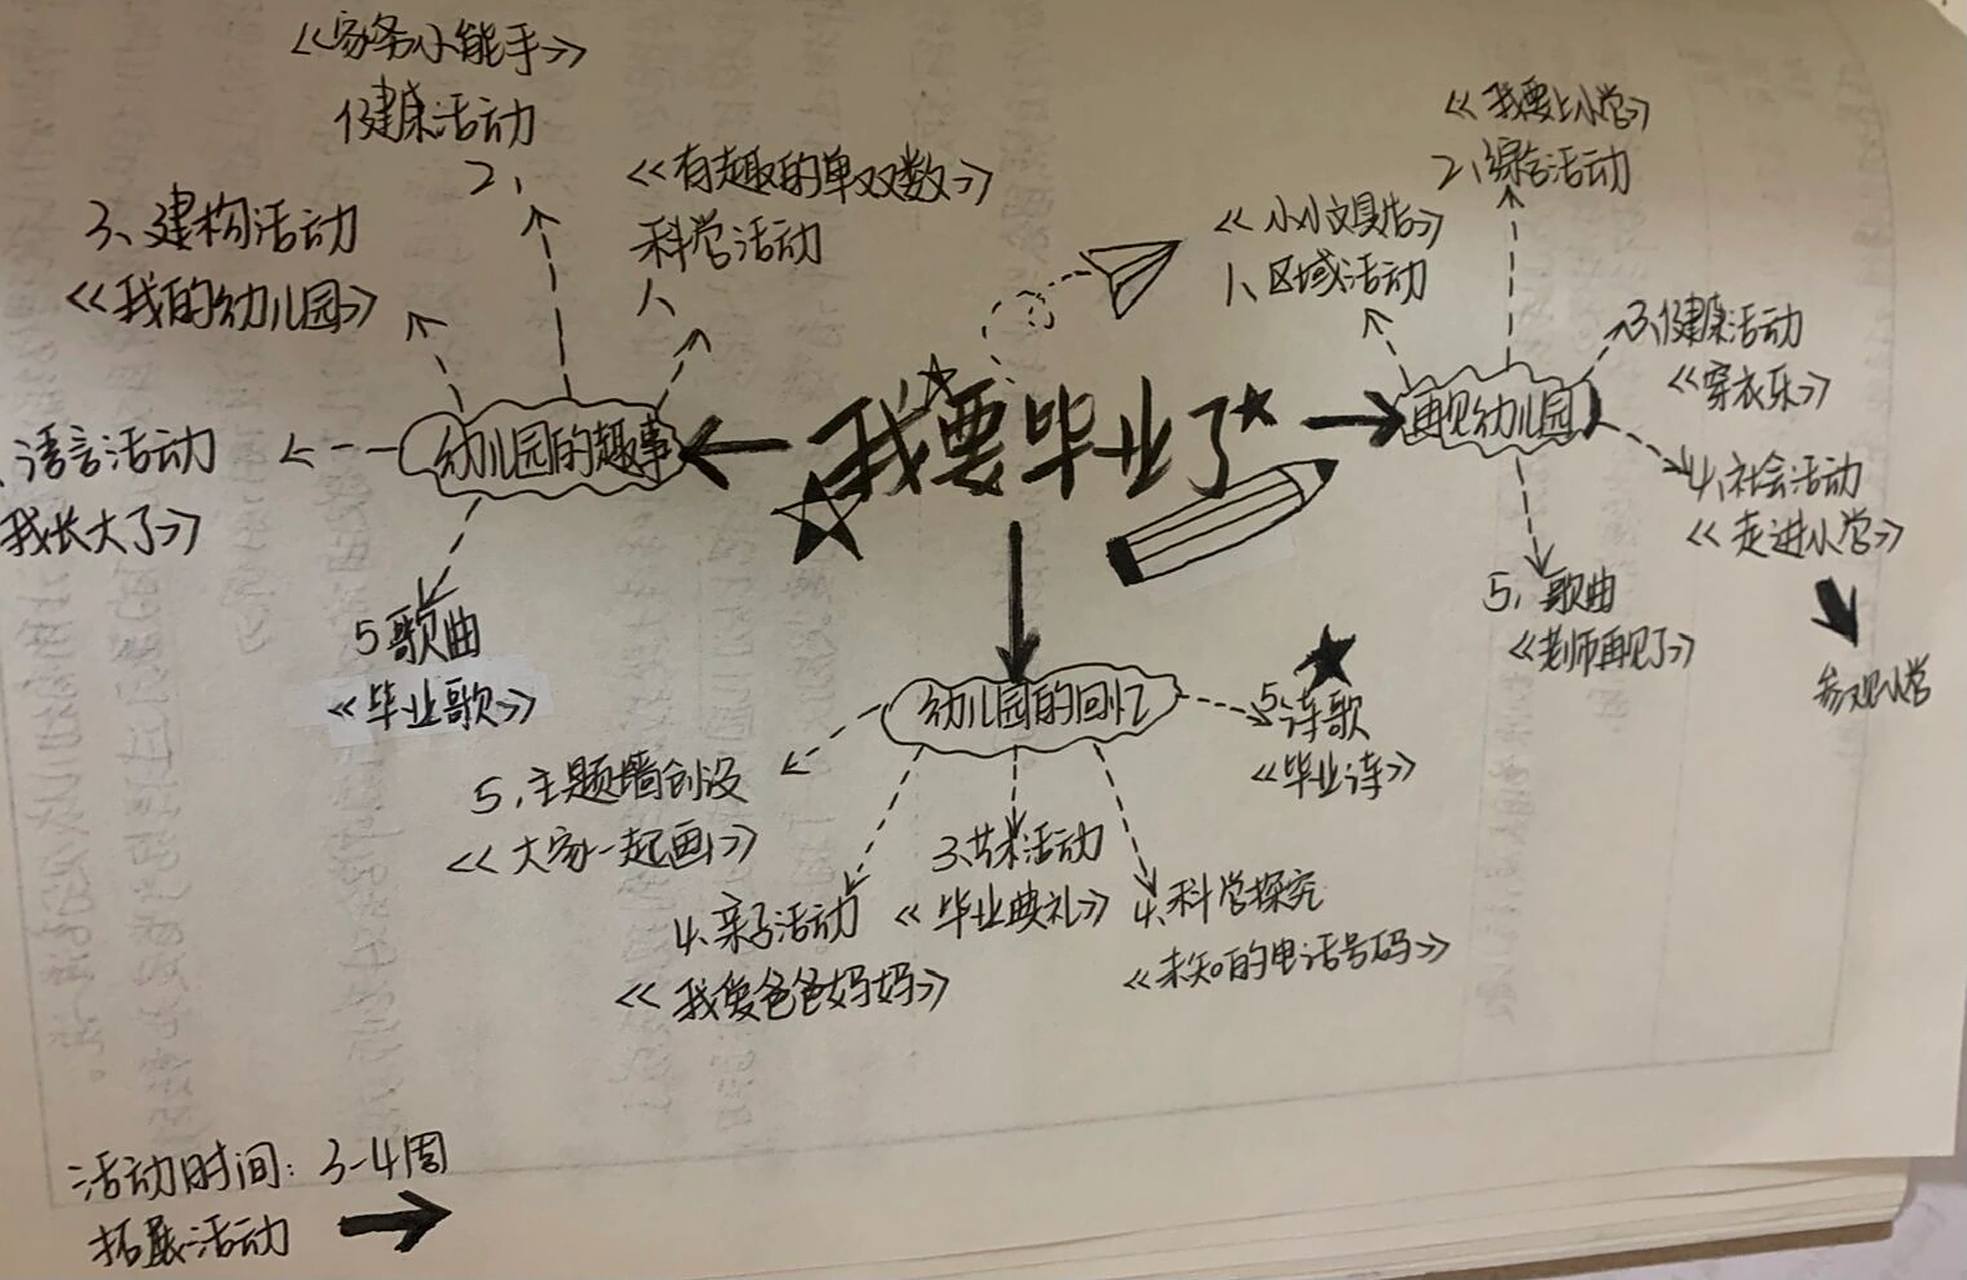 我要毕业了
幼儿园的趣事
《有趣的单双数》
科学活动
1、
《家务小能手》
健康活动
2、
3、建构活动
《我的幼儿园》
、语言活动
我长大了》
5 歌曲
《毕业歌》
再见幼儿园
《小小文具店》
1、区域活动
《我要上小学》
2、综合活动
3、健康活动
《穿衣乐》
4、社会活动
《走进小学》
参观小学
5、歌曲
《老师再见了》
幼儿园的回忆
5、主题墙创设
《大家一起画》
4、亲子活动
《我爱爸爸妈妈》
3、艺术活动
《毕业典礼》
4、科学探究
《未知的电话号码》
5、诗歌
《毕业诗》
活动时间：3-4周
拓展活动